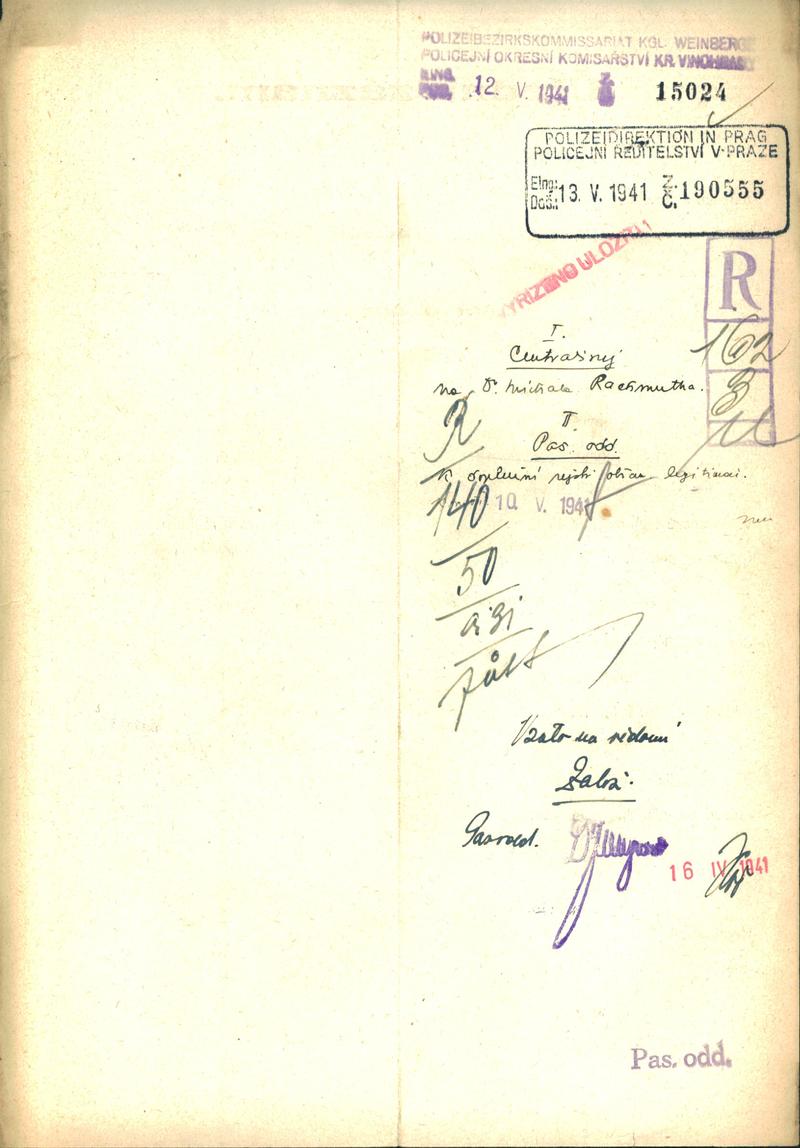 POLIZEIBEZIRKSKOMMISSARIAT KGL. WEINBERGE
POLICEJNÍ OKRESNÍ KOMISAŘSTVÍ KR. VINOHRADY
12. V. 1941 15024
POLIZEIDIREKTION IN PRAG
POLICEJNÍ ŘEDITELSTVÍ V PRAZE
Eing.:
Doš.: 13. V. 1941 Z. Č. 190555
VYŘÍZENO ULOŽITI!
R
162
3
I.
na D. Michala Rachmutha.
R
II.
Pas. odd.
K doplnění legitimací.
140 10. V. 1941
50
Vzato na vědomí
Založ.
16 IV 1941
Pas. odd.